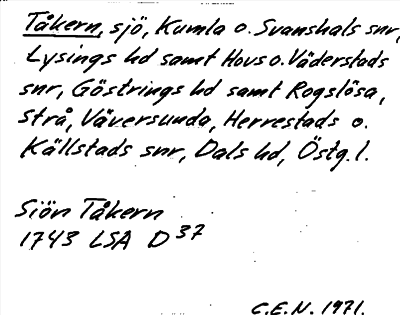 Tåkern, sjö, Kumla o. Svanshals snr,
Lysings hd samt Hovs o. Väderstads
snr, Göstrings hd samt Rogslösa,
Strå, Väversunda, Herrestads o.
Källstads snr, Dals hd, Östg. l.
Siön Tåkern
1743 LSA D 37
C.E.N. 1971.